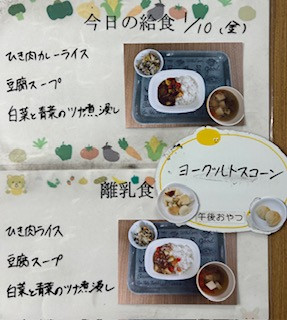 今日の給食 1/10 (金)
ひき肉カレーライス
豆腐スープ
白菜と青菜のツナ煮浸し
ヨーグルトスコーン
午後おやつ
離乳食
ひき肉ライス
豆腐スープ
白菜と青菜のツナ煮浸し